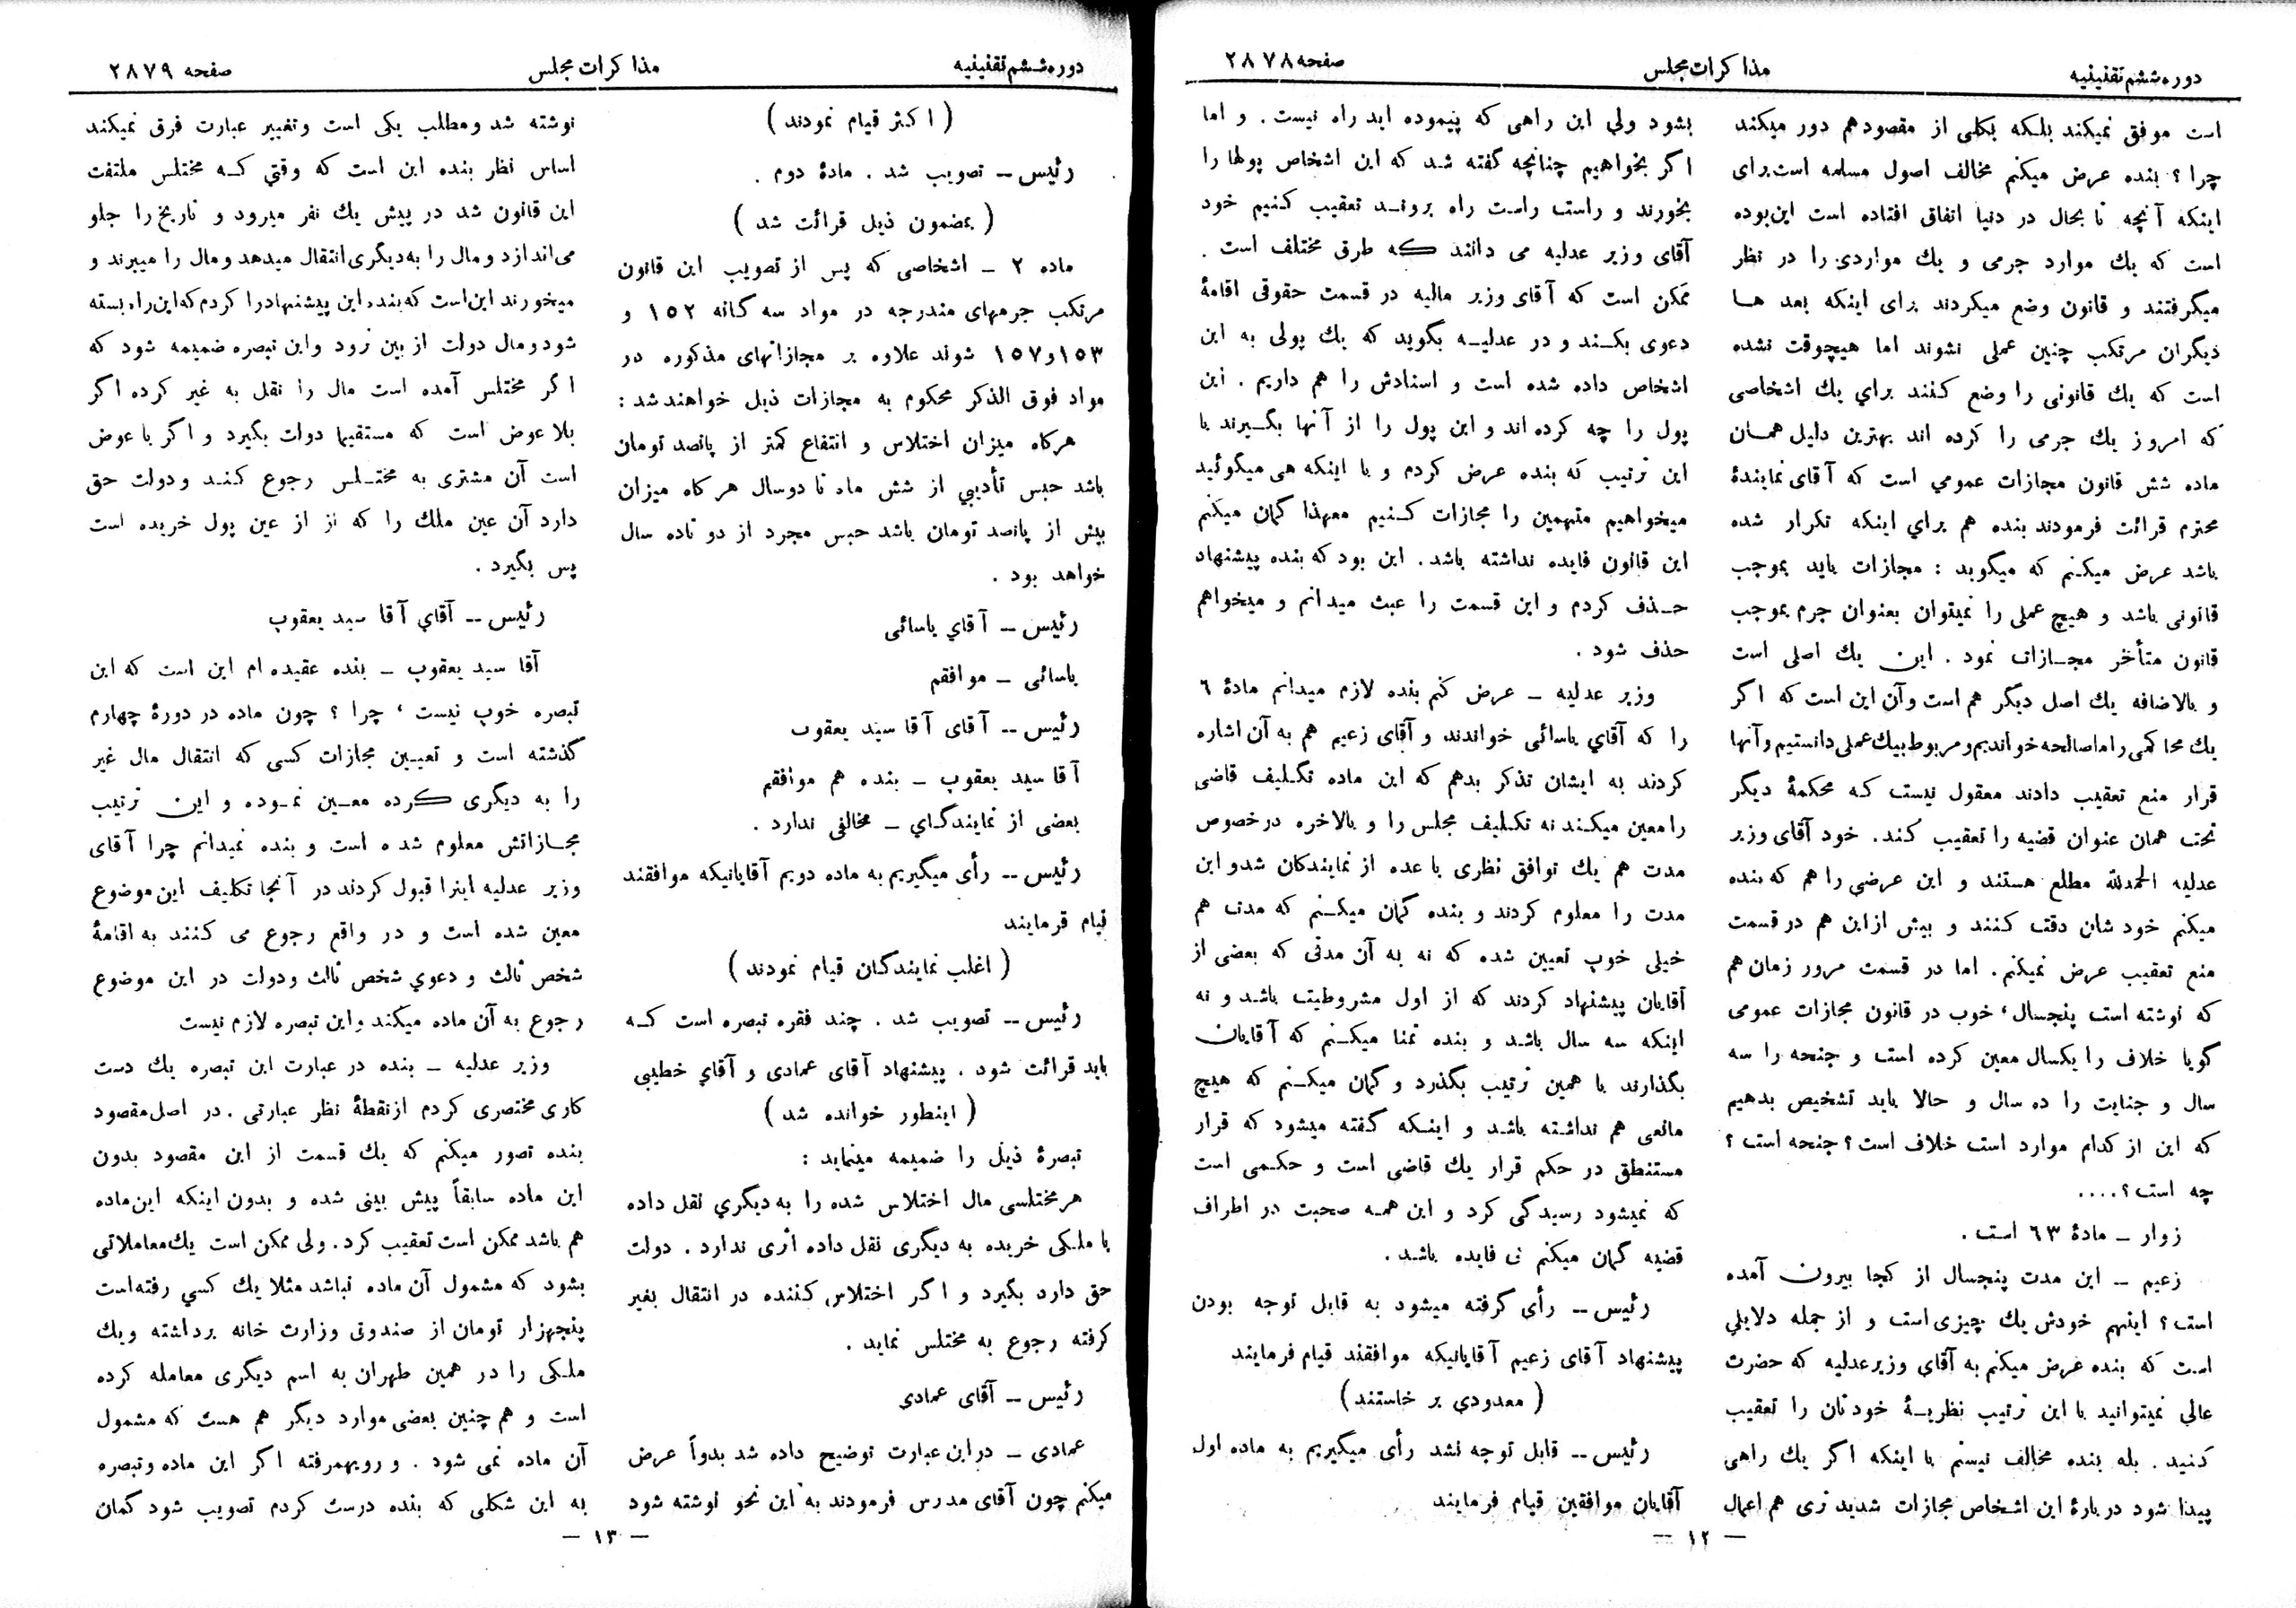 دوره ششم تقنینیه
مذاکرات مجلس
صفحه ۲۸۷۸
است موفق نمیکند بلکه بکلی از مقصودهم دور میکند
چرا ؟ بنده عرض میکنم مخالف اصول مسلمه است برای
اینکه آنچه تا بحال در دنیا اتفاق افتاده است این بوده
است که یك موارد جرمی و یك مواردی را در نظر
میگرفتند و قانون وضع میکردند برای اینکه بعد ها
دیگران مرتکب چنین عملی نشوند اما هیچوقت نشده
است که یك قانونی را وضع کنند برای یك اشخاصی
که امروز یك جرمی را کرده اند بهترین دلیل همان
ماده شش قانون مجازات عمومی است که آقای نمایندهٔ
محترم قرائت فرمودند بنده هم برای اینکه تکرار شده
باشد عرض میکنم که میگوید : مجازات باید بموجب
قانونی باشد و هیچ عملی را نمیتوان بعنوان جرم بموجب
قانون متأخر مجازات نمود . این یك اصلی است
و بالاضافه یك اصل دیگر هم است وآن این است که اگر
یك محاکمی را ما صالحه خواندیم و مربوط بیك عملی دانستیم وآنها
قرار منع تعقیب دادند معقول نیست که محکمهٔ دیگر
تحت همان عنوان قضیه را تعقیب کند. خود آقای وزیر
عدلیه الحمدلله مطلع هستند و این عرضی را هم که بنده
میکنم خود شان دقت کنند و بیش از این هم در قسمت
منع تعقیب عرض نمیکنم. اما در قسمت مرور زمان هم
که نوشته است پنجسال، خوب در قانون مجازات عمومی
گویا خلاف را یکسال معین کرده است و جنحه را سه
سال و جنایت را ده سال و حالا باید تشخیص بدهیم
که این از کدام موارد است خلاف است ؟ جنحه است ؟
چه است ؟....
زوار ــ مادهٔ ۶۳ است .
زعیم ــ این مدت پنجسال از کجا بیرون آمده
است ؟ اینهم خودش یك چیزی است و از جمله دلایلی
است که بنده عرض میکنم به آقای وزیر عدلیه که حضرت
عالی نمیتوانید با این ترتیب نظریهٔ خودتان را تعقیب
کنید . بله بنده مخالف نیستم با اینکه اگر یك راهی
پیدا شود دربارهٔ این اشخاص مجازات شدید تری هم اعمال
بشود ولی این راهی که پیموده اید راه نیست . و اما
اگر بخواهیم چنانچه گفته شد که این اشخاص پولها را
بخورند و راست راست راه بروند تعقیب کنیم خود
آقای وزیر عدلیه می دانند که طرق مختلف است .
ممکن است که آقای وزیر مالیه در قسمت حقوقی اقامهٔ
دعوی بکند و در عدلیه بگوید که یك پولی به این
اشخاص داده شده است و اسنادش را هم داریم . این
پول را چه کرده اند و این پول را از آنها بگیرند با
این ترتیب که بنده عرض کردم و با اینکه هی میگوئید
میخواهیم متهمین را مجازات کنیم معهذا گمان میکنم
این قانون فایده نداشته باشد. این بود که بنده پیشنهاد
حذف کردم و این قسمت را عبث میدانم و میخواهم
حذف شود .
وزیر عدلیه ــ عرض کنم بنده لازم میدانم مادهٔ ۶
را که آقای یاسائی خواندند و آقای زعیم هم به آن اشاره
کردند به ایشان تذکر بدهم که این ماده تکلیف قاضی
را معین میکند نه تکلیف مجلس را و بالاخره در خصوص
مدت هم یك توافق نظری با عده از نمایندگان شد و این
مدت را معلوم کردند و بنده گمان میکنم که مدت هم
خیلی خوب تعیین شده که نه به آن مدتی که بعضی از
آقایان پیشنهاد کردند که از اول مشروطیت باشد و نه
اینکه سه سال باشد و بنده تمنا میکنم که آقایان
بگذارند با همین ترتیب بگذرد و گمان میکنم که هیچ
مانعی هم نداشته باشد و اینکه گفته میشود که قرار
مستنطق در حکم قرار یك قاضی است و حکمی است
که نمیشود رسیدگی کرد و این همه صحبت در اطراف
قضیه گمان میکنم بی فایده باشد .
رئیس ــ رأی گرفته میشود به قابل توجه بودن
پیشنهاد آقای زعیم آقایانیکه موافقند قیام فرمایند
( معدودی بر خاستند )
رئیس ــ قابل توجه نشد رأی میگیریم به ماده اول
آقایان موافقین قیام فرمایند
— ۱۲ —
دوره ششم تقنینیه
مذاکرات مجلس
صفحه ۲۸۷۹
( اکثر قیام نمودند )
رئیس ــ تصویب شد . مادهٔ دوم .
( بمضمون ذیل قرائت شد )
ماده ۲ ــ اشخاصی که پس از تصویب این قانون
مرتکب جرمهای مندرجه در مواد سه گانه ۱۵۲ و
۱۵۳و۱۵۷ شوند علاوه بر مجازاتهای مذکوره در
مواد فوق الذکر محکوم به مجازات ذیل خواهند شد :
هرگاه میزان اختلاس و انتفاع کمتر از پانصد تومان
باشد حبس تأدیبی از شش ماه تا دوسال هرگاه میزان
بیش از پانصد تومان باشد حبس مجرد از دو تاده سال
خواهد بود .
رئیس ــ آقای یاسائی
یاسائی ــ موافقم
رئیس ــ آقای آقا سید یعقوب
آقا سید یعقوب ــ بنده هم موافقم
بعضی از نمایندگان ــ مخالفی ندارد .
رئیس ــ رأی میگیریم به ماده دویم آقایانیکه موافقند
قیام فرمایند
( اغلب نمایندگان قیام نمودند )
رئیس ــ تصویب شد . چند فقره تبصره است که
باید قرائت شود . پیشنهاد آقای عمادی و آقای خطیبی
( اینطور خوانده شد )
تبصرهٔ ذیل را ضمیمه مینماید :
هر مختلسی مال اختلاس شده را به دیگری نقل داده
یا ملکی خریده به دیگری نقل داده اثری ندارد . دولت
حق دارد بگیرد و اگر اختلاس کننده در انتقال بغیر
گرفته رجوع به مختلس نماید .
رئیس ــ آقای عمادی
عمادی ــ دراین عبارت توضیح داده شد بدواً عرض
میکنم چون آقای مدرس فرمودند به این نحو نوشته شود
نوشته شد و مطلب یکی است وتغییر عبارت فرق نمیکند
اساس نظر بنده این است که وقتی که مختلس ملتفت
این قانون شد در پیش یك نفر میرود و تاریخ را جلو
می اندازد و مال را به دیگری انتقال میدهد و مال را میبرند و
میخورند این است که بنده این پیشنهاد را کردم که این راه بسته
شود و مال دولت از بین نرود واین تبصره ضمیمه شود که
اگر مختلس آمده است مال را نقل به غیر کرده اگر
بلا عوض است که مستقیما دولت بگیرد و اگر با عوض
است آن مشتری به مختلس رجوع کند و دولت حق
دارد آن عین ملك را که از از عین پول خریده است
پس بگیرد .
رئیس ــ آقای آقا سید یعقوب
آقا سید یعقوب ــ بنده عقیده ام این است که این
تبصره خوب نیست ، چرا ؟ چون ماده در دورهٔ چهارم
گذشته است و تعیین مجازات کسی که انتقال مال غیر
را به دیگری کرده معین نموده و این ترتیب
مجازاتش معلوم شده است و بنده نمیدانم چرا آقای
وزیر عدلیه اینرا قبول کردند در آنجا تکلیف این موضوع
معین شده است و در واقع رجوع می کنند به اقامهٔ
شخص ثالث و دعوی شخص ثالث ودولت در این موضوع
رجوع به آن ماده میکند و این تبصره لازم نیست
وزیر عدلیه ــ بنده در عبارت این تبصره یك دست
کاری مختصری کردم از نقطهٔ نظر عبارتی . در اصل مقصود
بنده تصور میکنم که یك قسمت از این مقصود بدون
این ماده سابقاً پیش بینی شده و بدون اینکه این ماده
هم باشد ممکن است تعقیب کرد. ولی ممکن است یك معاملاتی
بشود که مشمول آن ماده نباشد مثلا یك کسی رفته است
پنجهزار تومان از صندوق وزارت خانه برداشته ویك
ملکی را در همین طهران به اسم دیگری معامله کرده
است و هم چنین بعضی موارد دیگر هم هست که مشمول
آن ماده نمی شود . و رویهمرفته اگر این ماده وتبصره
به این شکلی که بنده درست کردم تصویب شود گمان
— ۱۳ —